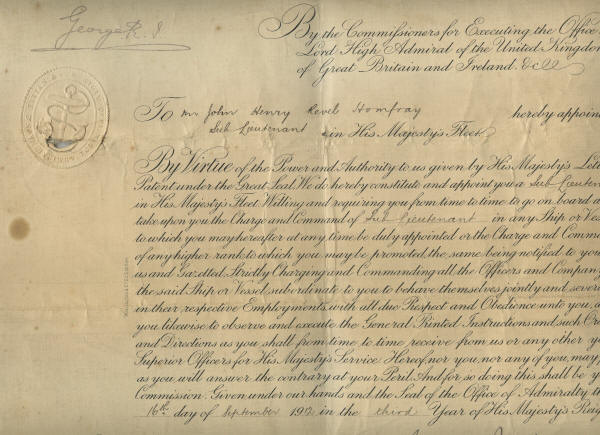 George R. I
By the Commissioners for Executing the Office
Lord High Admiral of the United Kingdom
of Great Britain and Ireland. &c
To Mr John Henry Revel Homfray hereby appoin
Sub Lieutenant in His Majesty's Fleet
By Virtue of the Power and Authority to us given by His Majesty's Lette
Patent under the Great Seal. We do hereby constitute and appoint you a Sub Lieuten
in His Majesty's Fleet Willing and requiring you from time to time to go on board a
take upon you the Charge and Command of Sub Lieutenant in any Ship or Vess
to which you may hereafter at any time be duly appointed or the Charge and Comm
of any higher rank to which you may be promoted the same being notified to you
us and Gazetted. Strictly Charging and Commanding all the Officers and Company
the said Ship or Vessel subordinate to you to behave themselves jointly and severa
in their respective Employments with all due Respect and Obedience unto you, a
you likewise to observe and execute the General Printed Instructions and such Or
and Directions as you shall from time to time receive from us or any other y
Superior Officers for His Majesty's Service Hereof nor you, nor any of you, may
as you will answer the contrary at your Peril. And for so doing this shall be y
Commission. Given under our hands and the Seal of the Office of Admiralty th
16th day of September in the third Year of His Majesty's Reig